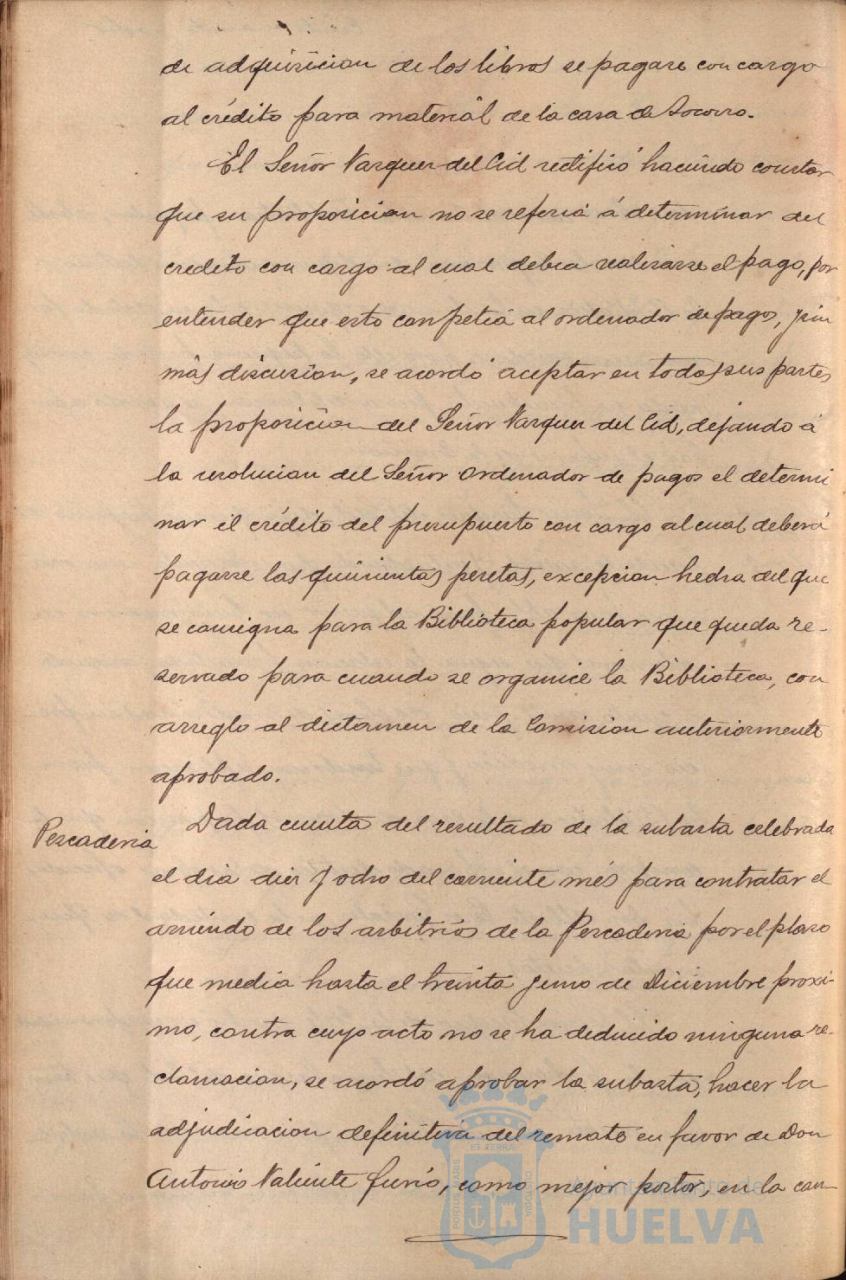 de adquisicion de los libros se pagase con cargo
al crédito para material de la casa de Socorro.
El Señor Vazquez del Cid rectificó haciendo constar
que su proposicion no se referia á determinar del
credito con cargo al cual debia realizarse el pago, por
entender que esto competia al ordenador de pagos, y sin
más discusion, se acordó aceptar en todas sus partes
la proposicion del Señor Vazquez del Cid, dejando á
la resolucion del Señor Ordenador de pagos el determi
nar el crédito del presupuesto con cargo al cual deberá
pagarse las quinientas pesetas, excepcion hecha del que
se consigna para la Biblioteca popular que queda re-
servado para cuando se organice la Biblioteca, con
arreglo al dictamen de la Comision anteriormente
aprobado.
Pescaderia
Dada cuenta del resultado de la subasta celebrada
el dia diez y ocho del corriente més para contratar el
arriendo de los arbitrios de la Pescaderia por el plazo
que media hasta el treinta y uno de Diciembre proxi-
mo, contra cuyo acto no se ha deducido ninguna re-
clamacion, se acordó aprobar la subasta, hacer la
adjudicacion definitiva del remate en favor de Don
Antonio Valiente Furió, como mejor postor, en la can-
Ayuntamiento de
HUELVA